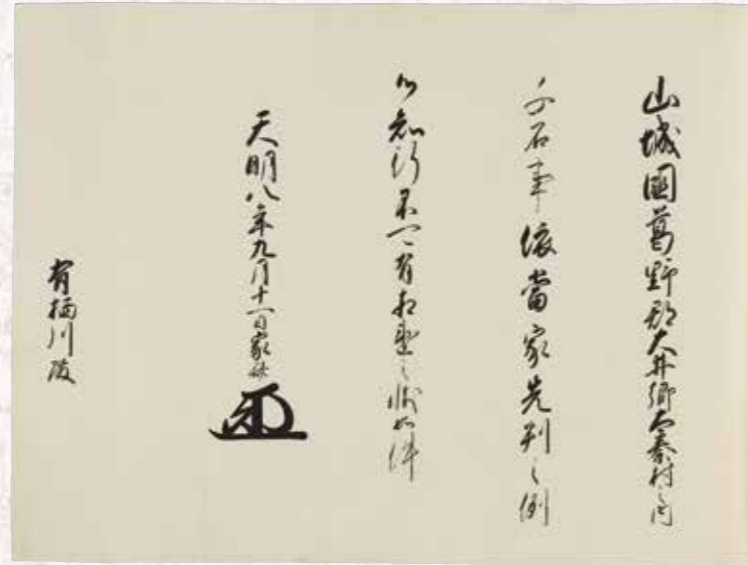 山城國葛野郡大井郷太秦村之内
千石事依當家先判之例
御知行不可有相違之状如件
天明八年九月十一日家
有栖川殿